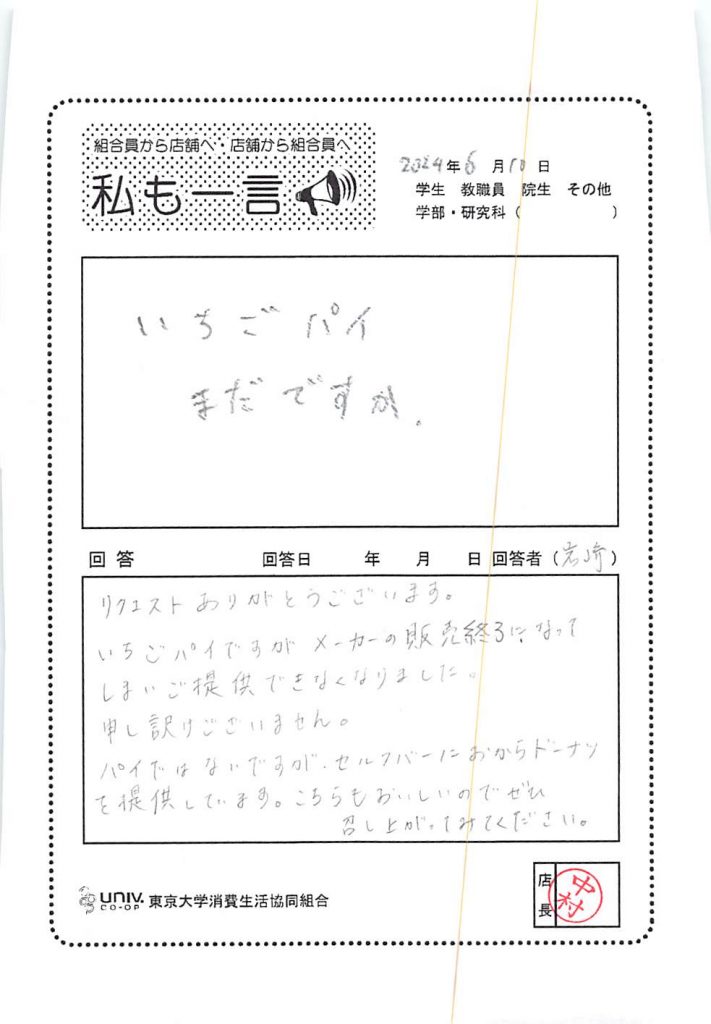 組合員から店舗へ・店舗から組合員へ
私も一言
2024年6月10日
学生 教職員 院生 その他
学部・研究科（ ）
いちごパイ
まだですか.
回答 回答日 年 月 日 回答者（岩崎）
リクエストありがとうございます。
いちごパイですがメーカーの販売終了になって
しまいご提供できなくなりました。
申し訳けございません。
パイではないですが、セルフバーにおからドーナツ
を提供しています。こちらもおいしいのでぜひ
召し上がってみてください。
UNIV. CO-OP 東京大学消費生活協同組合
店長 中村